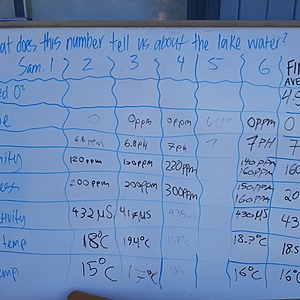 at does this number tell us about the lake water?
Sam. 1 2 3 4 5 6 FIN
AVE
ed O²
e 0 0ppm 0ppm 0ppm 0
6.8ppm 6.8pH 7pH 7pH 7
nity 120ppm 120ppm 220ppm 140ppm 160
160ppm
ess 200ppm 200ppm 300ppm 150ppm 20
160ppm
tivity 432µS 417µS 430µS 43
temp 18°C 19.4°C 18.7°C 18.5
emp 15°C 17°C 16°C 16°C